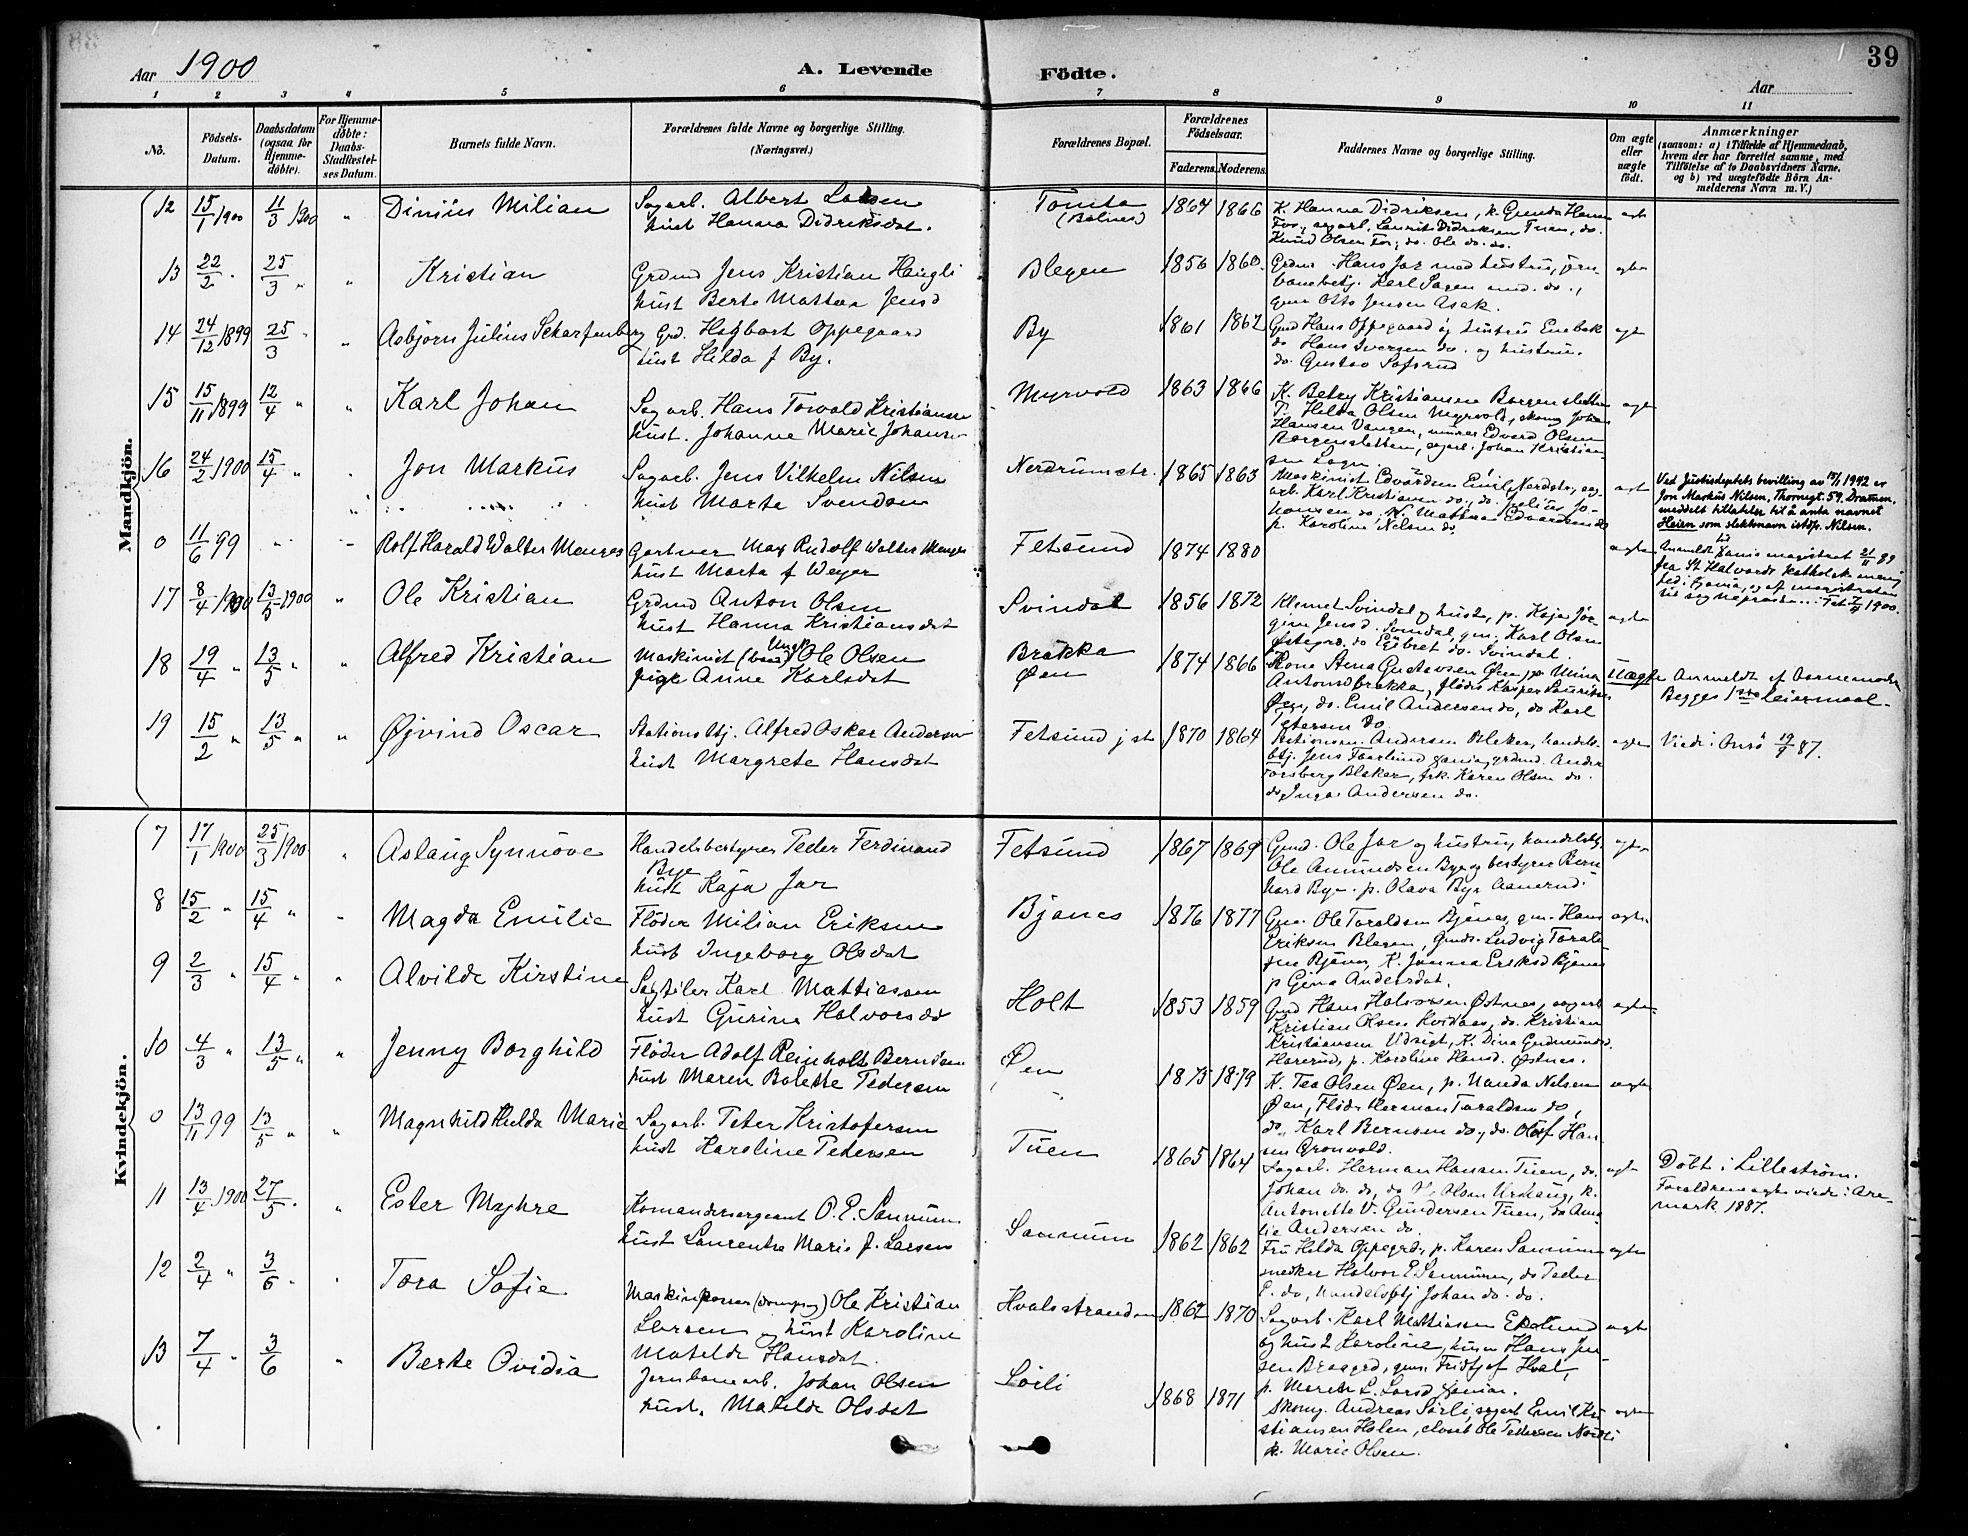 39
Aar 1900
A. Levende Födte.
Aar
1 2 3 4 5 6 7 8 9 10 11
No.
Födsels-Datum.
Daabsdatum (ogsaa for Hjemme-döbte).
For Hjemme-döbte: Daabs-Stadfæstel-ses Datum.
Barnets fulde Navn.
Forældrenes fulde Navne og borgerlige Stilling.
(Næringsvei.)
Forældrenes Bopæl.
Forældrenes Födselsaar.
Faderens. Moderens.
Faddernes Navne og borgerlige Stilling.
Om ægte eller uægte födt.
Anmærkninger
(saasom: a) i Tilfælde af Hjemmedaab,
hvem der har forrettet samme, med
Tilföielse af to Daabsvidners Navne,
og b) ved uægtefödte Börn An-
melderens Navn m. V.)
Mandkjön.
12 15/1 1900 11/3 1900 " Milian
Sagarb. Albert Larsen
hust Hanna Didriksdat.
Tomta
(Bälnes)
1864 1866
K. Hanna Didriksen, k. Gunda Hansen
Fos, sagarb. Laurits Didriksen Tuen, do.
Knud Olsen Fos, do. Ole do. do.
ægte
13 22/2 " 25/3 " " Kristian
Grdmd Jens Kristian Haugli
hust Berte Mattea Jensd
Blegen
1856 1860
Grdm. Hans Jar med hustru, jern
banebetj. Karl Sagen med do.,
gm Otto Jensen Asak.
ægte
14 24/12 1899 25/3 " " Asbjørn Julius Scharfenberg
Grd. Hagbart Oppegaard
hust Hilda f By.
By
1861 1862
Gmd Hans Oppegaard og hustru Enebak
do Hans Iversen do. og hustru.
do. Gustav Sofsrud
ægte
15 15/11 1899 12/4 " " Karl Johan
Sagarb. Hans Torvald Kristiansen
hust. Johanne Marie Johansen
Myrvold
1863 1866
K. Betzy Kristiansen Borgensletten
P. Hilda Olsen Myrvold, skomg Johan
Hansen Vangen, murer Edvard Olsen
Borgensletten, sagarb. Johan Kristian
sen
ægte
16 24/2 1900 15/4 " " Jon Markus
Sagarb. Jens Vilhelm Nilsen
hust Marte Svendsen
Nerdrumstr.
1865 1863
Maskinist Edvardsen Emil Nordstr., sag-
arb. Karl Kristiansen do., do. Julius Jo-
hansen do. K. Mattea Edvardsen do
p. Karoline Nilsen do.
ægte
Ved Justisdeptets bevilling av 1942 er
Jon Markus Nilsen, Thornegt. 59, Drammen,
meddelt tillatelse til å anta navnet
Heien som slektnavn istdf. Nilsen.
0 11/6 99 " Rolf Harald Walter Menges
Gartner Max Rudolf Walter Menges
hust Marta f Weyer
Fetsund
1874 1880
ægte
Anmeldt til Xania magistrat 21/11 99
fra St Halvards katholsk menig
hed i Xania, og af magistraten
til sogneprest i Fet 1900.
17 8/4 1900 13/5 1900 " Ole Kristian
Grdmd Anton Olsen
hust Hanna Kristiansdat
Svindal
1856 1872
Klemet Svindal og hustr, p. Kaja Jør
gine Jensd. Svindal, gm. Karl Olsen
Østegrd, do Eilbret do. Svindal.
ægte
18 19/4 " 13/5 " " Alfred Kristian
Maskinist Ungk Ole Olsen
pige Anne Karlsdat
Brakka
Øen
1874 1866
Kone Stina Gustavsen Øen, p. Mina
Antonsd brakka, fløder Kasper Lauridsen
Øen, do. Emil Andersen do, do Karl
Petersen do.
uægte
Anmeldt af barnemoder
Begges 1ste leiermaal.
19 15/2 " 13/5 " " Øjvind Oscar
Stationsbtj. Alfred Oskar Andersen
hust Margrete Hansdat
Fetsund j st
1870 1864
Stationsm. Andersen Blaker, handels-
btj. Jens Faarlund Xania, grdmd. Anders
Forsberg Blaker, frk. Karen Olsen do.
do, Inga Andersen do.
ægte
Viede i Onsø 19/9 87.
Kvindekjön.
7 17/1 1900 25/3 1900 " Aslaug Synnøve
Handelsbestyrer Peder Ferdinand
Bye
hust Kaja Jar
Fetsund
1867 1869
Gmd. Ole Jar og hustru, handelsbtj.
Ole Amundsen Bye og bestyrer Bern
hard Bye. p. Olava Bye Aanerud.
ægte
8 15/2 " 15/4 " " Magda Emilie
Fløder Milian Eriksen
hust Ingeborg Olsdat
Bjanes
1876 1877
Gm. Ole Taraldsen Bjanes, gm. Hans
Eriksen Blegen, Gmds. Ludvig Tarald-
sen Bjanes, K. Janna Eriksd Bjanes
p Gina Andersdat.
ægte
9 2/3 " 15/4 " " Alvilde Kirstine
Sagfiler Karl Mattiassen
hust Gurine Halvorsdt
Holt
1853 1859
Gmd Hans Halvorsen Østnes, sagarb
Kristian Olsen Hvidaas, do. Kristian
Kristiansen Udsigt, K. Dina Gudmunsd.
Harerud, p. Karoline Hansd. Østnes.
ægte
10 4/3 " 13/5 " " Jenny Borghild
Fløder Adolf Reinholt Berndsen
hust Maren Bolette Pedersen
Øen
1875 1879
K. Tea Olsen Øen, p. Nanda Nelsen
Øen, Fløder Herman Taraldsen do,
do, Karl Bernsen do, do. Olaf Han
sen Grønvold.
ægte
0 13/11 99 13/5 " " Magnhild Hulda Marie
Sagarb. Peter Kristofersen
hust Karoline Pedersen
Tuen
1865 1864
Sagarb. Herman Hansen Tuen, do.
Johan do. do, do Olsen Urhaug, k.
Antonette V. Gundersen Tuen, do Ama
lie Andersen do
ægte
Døbt i Lillestrøm.
Forældrene ægteviede i Are-
mark 1887.
11 13/4 1900 27/5 " " Ester Myhre
Komandersergeant O. E. Sannum
hust Laurentze Marie f. Larsen
Sannum
1862 1862
Fru Hilda Oppegrd, p. Karen Sannum
snedker Halvor E. Sannum, do Peder
E. do, handelsbtj Johan do. do.
ægte
12 2/4 " 3/6 " " Tora Sofie
Maskinpasser Ole Kristian
Larsen og hust Karoline
Matilde Hansdat.
Hvalsstranden
1862 1870
Sagarb. Karl Mattiassen Ekelund
og hust Karoline, Hans Jen
sen Braagrd, gm. Fridtjof Hval,
p. Maren L. Larsd Xania.
ægte
13 7/4 " 3/6 " Bærte Ovidia
Jernbanearb. Johan Olsen
hust. Matilde Olsdat
Sørli
1868 1871
Skomg. Andreas Sørli, sagarb Emil Kri
stiansen Holen, Ole Pedersen Nordli
k. Marie Olsen.
ægte